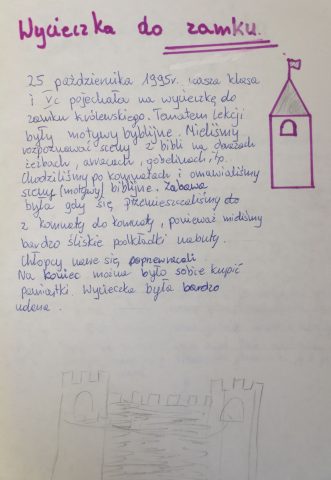 Wycieczka do zamku.
25 października 1995r. nasza klasa
i Vc pojechała na wycieczkę do
zamku królewskiego. Tematem lekcji
były motywy byblijne. Mieliśmy
rozpoznawać sceny z bibli na obrazach
rzeźbach, arrasach, gobelinach, itp.
Chodziliśmy po komnatach i omawialiśmy
sceny (motywy) biblijne. Zabawa
była gdy się przemieszczaliśmy do
z komnaty do komnaty, ponieważ mieliśmy
bardzo śliskie podkładki na buty.
Chłopcy nawet się poprzewracali.
Na koniec można było sobie kupić
pamiątki. Wycieczka była bardzo
udana.